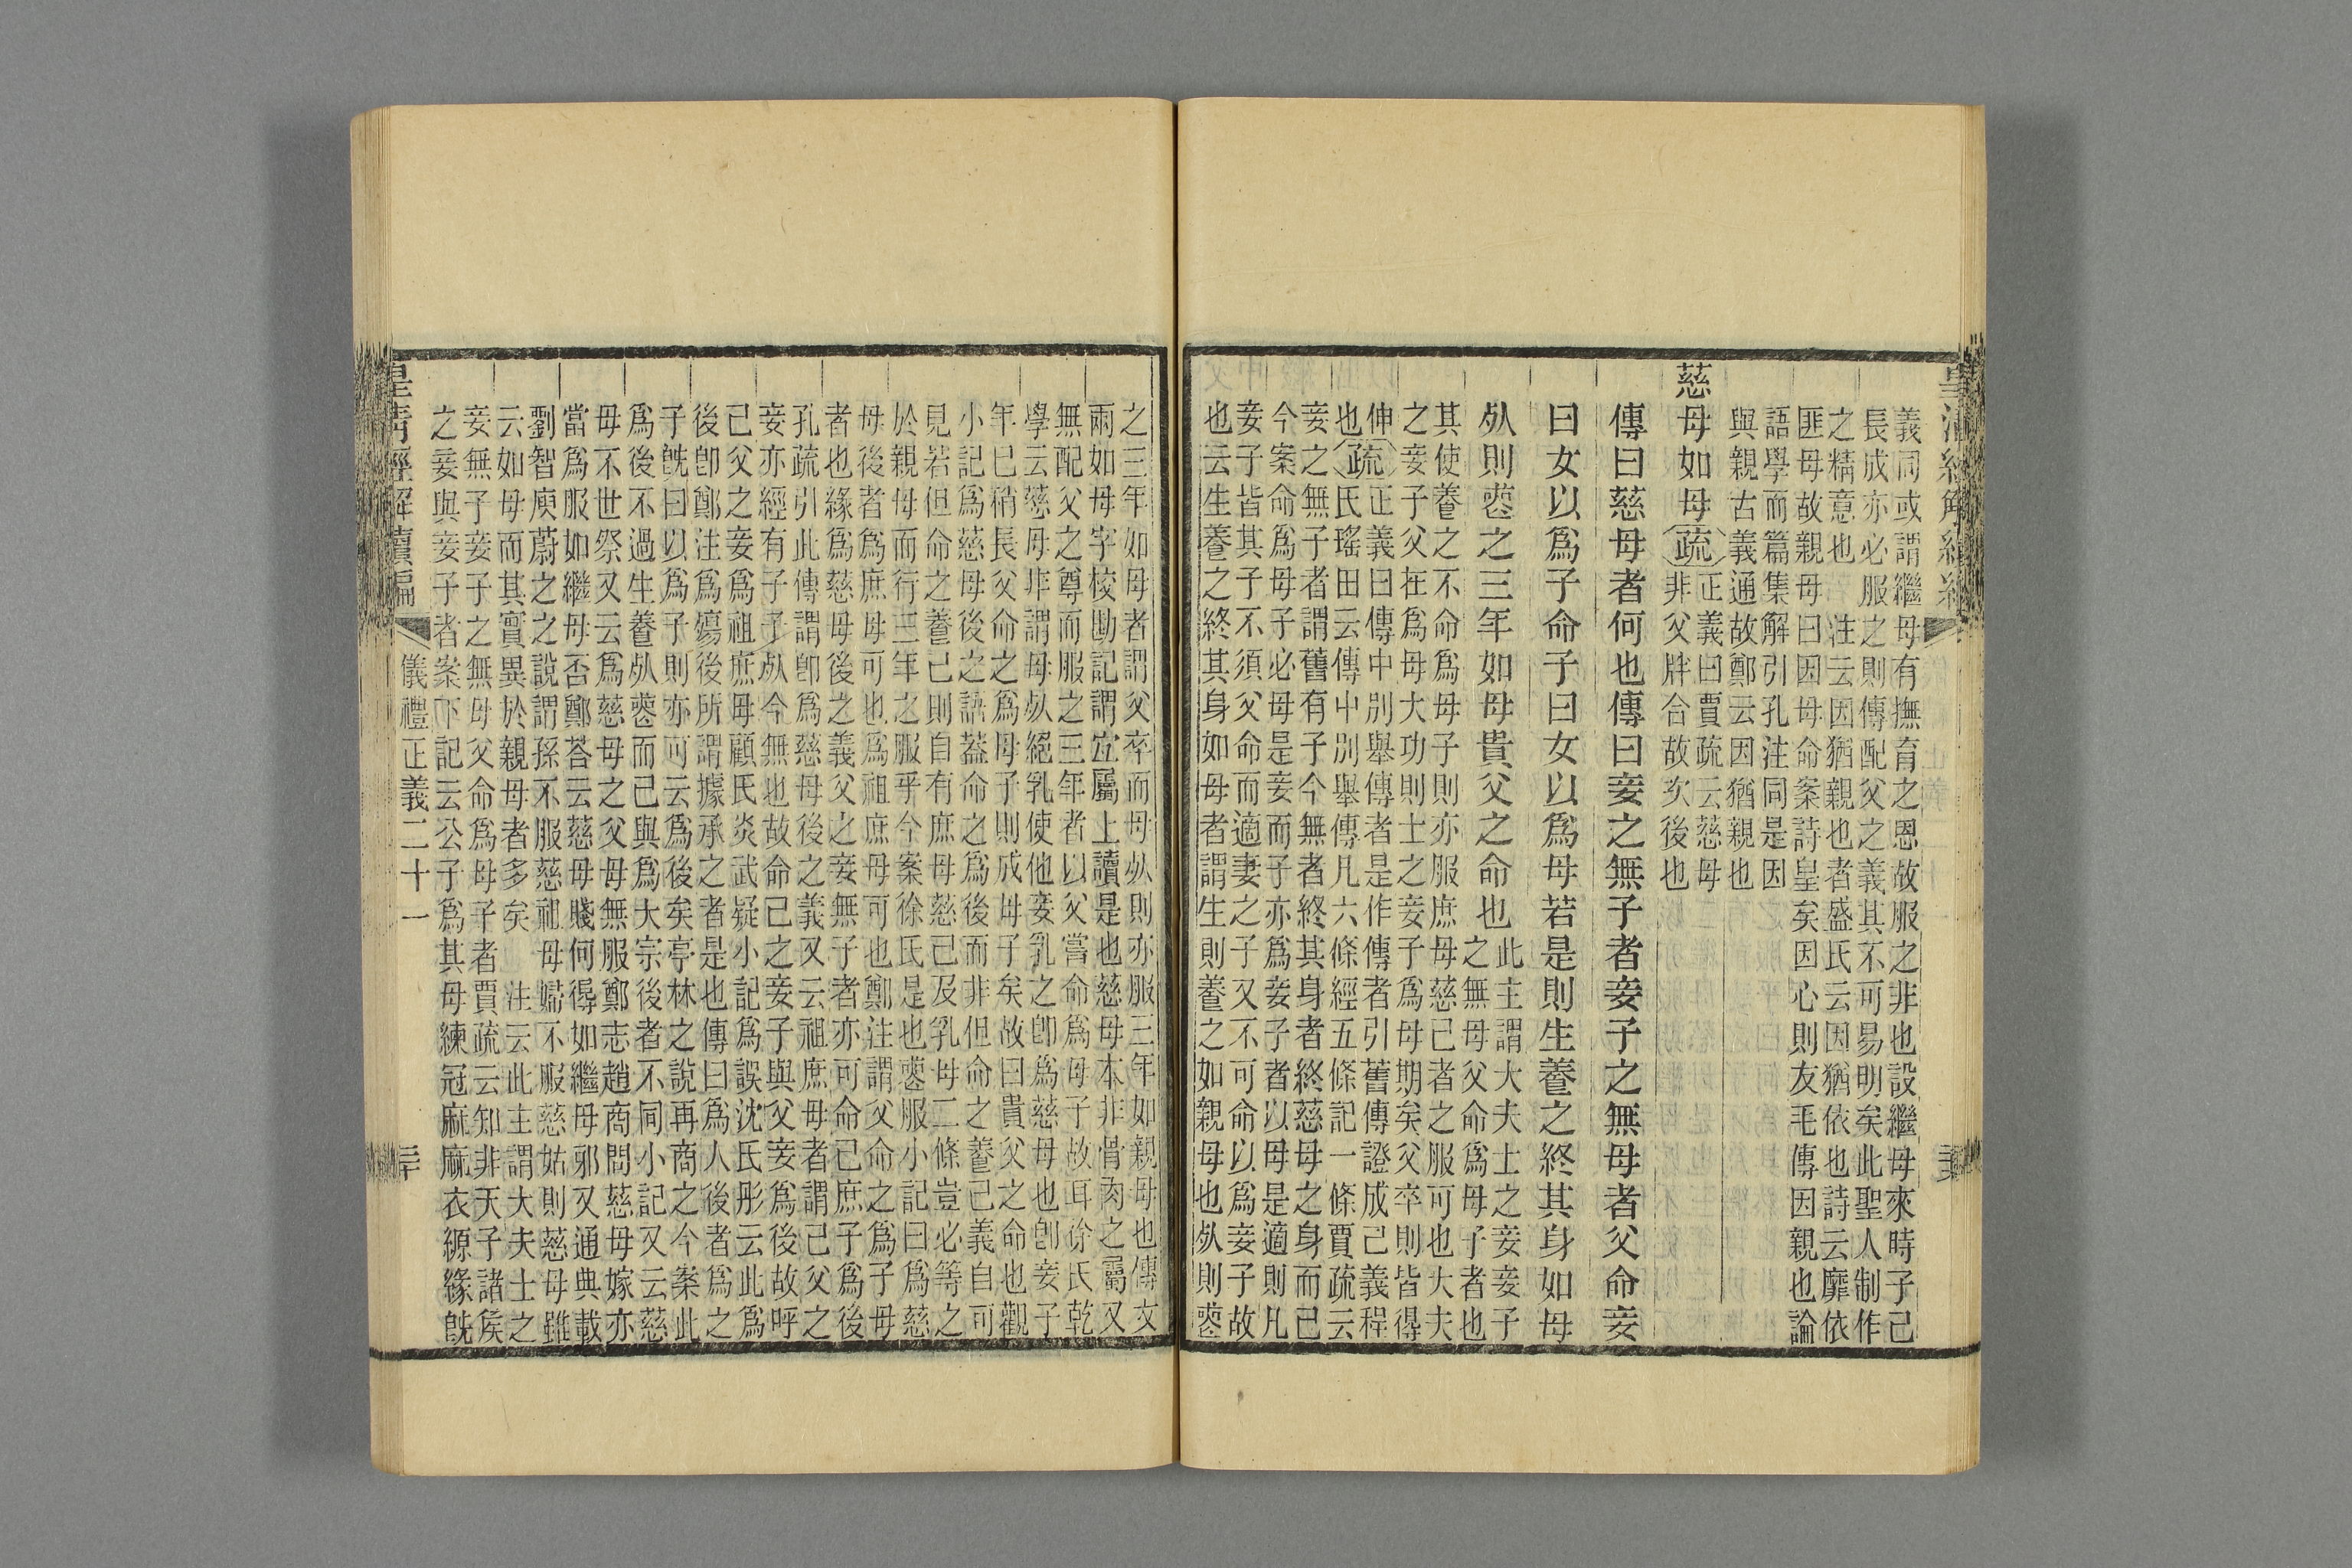 義同或謂繼母有撫育之恩故服之非也設繼母來時子己
長成亦必服之則傳配父之義其不可易明矣此聖人制作
之精意也　注云因猶親也者盛氏云因猶依也詩云靡依
匪母故親母曰因母命案詩皇矣因心則友毛傳因親也論
語學而篇集解引孔注同是因
與親古義通故鄭云因猶親也
慈母如母
疏
正義曰賈疏云慈母
非父牉合故次後也
傳曰慈母者何也傳曰妾之無子者妾子之無母者父命妾
曰女以爲子命子曰女以爲母若是則生養之終其身如母
死則喪之三年如母貴父之命也
此主謂大夫士之妾妾子
之無母父命爲母子者也
其使養之不命爲母子則亦服庶母慈己者之服可也大夫
之妾子父在爲母大功則士之妾子爲母期矣父卒則皆得
伸也
疏
正義曰傳中別舉傳者是作傳者引舊傳證成己義程
氏瑤田云傳中別舉傳凡六條經五條記一條賈疏云
妾之無子者謂舊有子今無者終其身者終慈母之身而已
今案命爲母子必母是妾而子亦爲妾子者以母是適則凡
妾子皆其子不須父命而適妻之子又不可命以爲妾子故
也云生養之終其身如母者謂生則養之如親母也死則喪
之三年如母者謂父卒而母死則亦服三年如親母也傳文
兩如母字校勘記謂宜屬上讀是也慈母本非骨肉之屬又
無配父之尊而服之三年者以父當命爲母子故耳徐氏乾
學云慈母非謂母死絕乳使他妾乳之卽爲慈母也卽妾子
年已稍長父命之爲母子則成母子矣故曰貴父之命也觀
小記爲慈母後之語蓋命之爲後而非但命之養己義自可
見若但命之養己則自有庶母慈己及乳母二條豈必等之
於親母而行三年之服乎今案徐氏是也喪服小記曰爲慈
母後者爲庶母可也爲祖庶母可也鄭注謂父命之爲子母
者也緣爲慈母後之義父之妾無子者亦可命己庶子爲後
孔疏引此傳謂卽爲慈母後之義又云祖庶母者謂己父之
妾亦經有子子死今無也故命己之妾子與父妾爲後故呼
己父之妾爲祖庶母顧氏炎武疑小記爲誤沈氏彤云此爲
後卽鄭注爲殤後所謂據承之者是也傳曰爲人後者爲之
子旣曰以爲子則亦可云爲後矣亭林之說再商之今案此
爲後不過生養死喪而已與爲大宗後者不同小記又云慈
母不世祭又云爲慈母之父母無服鄭志趙商問慈母嫁亦
當爲服如繼母否鄭荅云慈母賤何得如繼母邪又通典載
劉智庾蔚之之說謂孫不服慈祖母婦不服慈姑則慈母雖
云如母而其實異於親母者多矣　注云此主謂大夫士之
妾無子妾子之無母父命爲母子者賈疏云知非天子諸侯
之妾與妾子者案下記云公子爲其母練冠麻麻衣縓緣旣
皇清經解續編
儀禮正義二十一